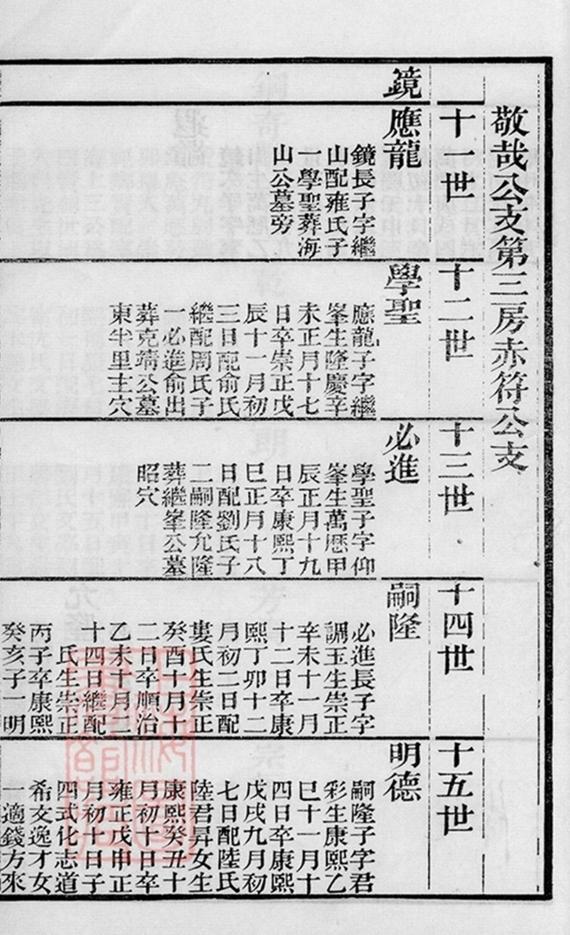 敬哉公支第三房赤符公支
十一世
十二世
十三世
十四世
十五世
鏡
應龍
鏡長子字繼
山配雍氏子
一學聖葬海
山公墓旁
學聖
應龍子字繼
峯生隆慶辛
未正月十七
日卒崇正戊
辰十一月初
三日配俞氏
繼配周氏子
一必進俞出
葬克靖公墓
東半里主穴
必進
學聖子字仰
峯生萬曆甲
辰正月十九
日卒康熙丁
巳正月十八
日配劉氏子
二嗣隆允隆
葬繼峯公墓
昭穴
嗣隆
必進長子字
調玉生崇正
辛未十一月
十二日卒康
熙丁卯十二
月初二日配
婁氏生崇正
癸酉十月十
二日卒順治
乙未十月二
十四日繼配
氏生崇正
丙子卒康熙
癸亥子一明
明德
嗣隆子字君
彩生康熙乙
巳十一月十
四日卒康熙
戊戌九月初
七日配陸氏
陸君昇女生
康熙癸丑十
月初十日卒
雍正戊申正
月初十日子
四式化志道
希文逸才女
一適錢方來